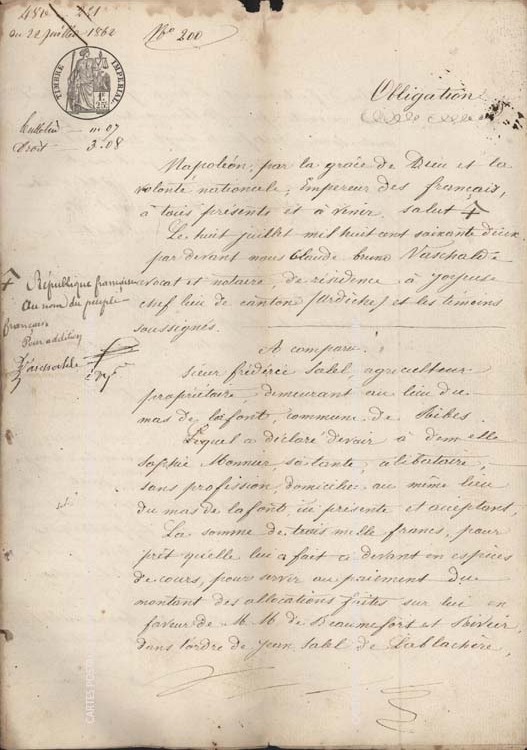 du 22 juillet 1862
No 200
TIMBRE IMPÉRIAL
1F
25C
Obligation
m. 07
Droit 3.08
Napoléon, par la grâce de Dieu et la
volonté nationale, Empereur des français,
à tous présents et à venir, salut
Le huit juillet mil huit cent soixante deux
par devant nous Claude bruno Vaschalde
avocat et notaire, de résidence à Joyeuse
chef lieu de canton (Ardèche) et les témoins
soussignés.
République française
Au nom du peuple
français
Pour addition
Vaschalde
A comparu.
sieur frédéric Sabel, agriculteur
propriétaire, demeurant au lieu du
mas de lafont, commune de Ribes
Lequel a déclaré devoir à demelle
Sophie Monnier, célibataire,
sans profession, domiciliée au même lieu
du mas de lafont, ici présente et acceptant,
La somme de trois mille francs, pour
prêt qu'elle lui a fait ci devant en espèces
de cours, pour servir au paiement du
montant des allocations faites sur lui en
faveur de M. M. de Beaumefort et
dans l'ordre de Jean Sabel de Lablachère,